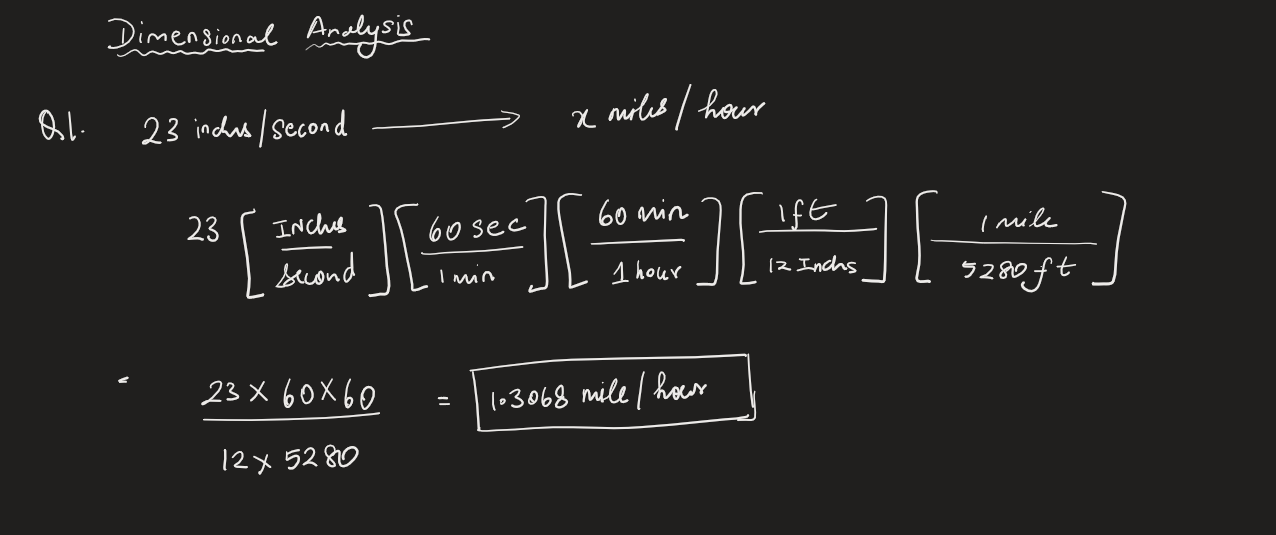 Dimensional Analysis
Q1. 23 inches/second → x miles/hour
23 [Inches/second] [60 sec/1 min] [60 min/1 hour] [1 ft/12 Inchs] [1 mile/5280 ft]
(23 × 60 × 60)/(12 × 5280) = 1.3068 mile/hour